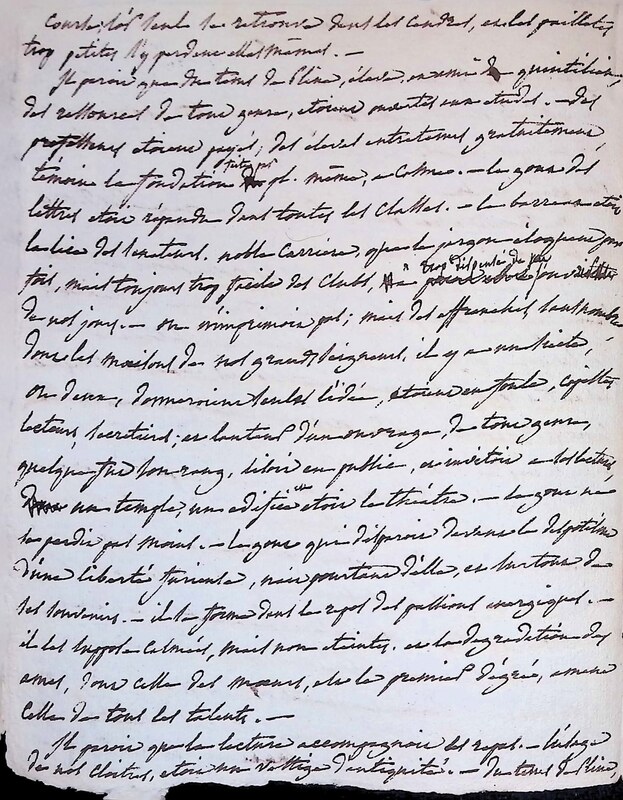 courte. l'or seul se retrouve dans les cendres, et les paillettes
trop petites s'y perdent elles mêmes. —
Il paroit que du tems de Pline, éleve, et ami de quintilien,
des ressources de tout genre, etoient ouvertes aux etudes. — des
professeurs etoient payés; des éleves entretenus gratuitement,
témoin la fondation faite par pl. même, a Come. — le gout des
lettres etoit répandu dans toutes les classes. — le barreau etoit
la lice des senateurs. noble carriere, que le jargon éloquent par
fois, mais toujours trop facile des clubs, a trop dispensé de
de nos jours. — on n'imprimoit pas; mais des affranchis sans nombre
dont les maisons de nos grands seigneurs, il y a un siecle,
ou deux, donneroient seules l'idée, etoient en foule, copistes,
lecteurs, secretaires; et l'auteur d'un ouvrage, de tout genre,
quelque fut son rang, lisoit en public, et invitoit a ses lectures,
un temple, un edifice etoit le théatre. — le gout ne
se perdit pas moins. — le gout qui disparoit devant le despotisme
d'une liberté furieuse, nait pourtant d'elle, et surtout de
ses souvenirs. — il se forme dans le repos des passions energiques. —
il les suppose calmées, mais non eteintes. et la degradation des
ames, dont celle des mœurs, est le premier dégré, amene
celle de tous les talents. —
Il paroit que la lecture accompagnoit les repas. — l'usage
de nos cloitres, etoit un vestige d'antiquité. — du tems de Pline,